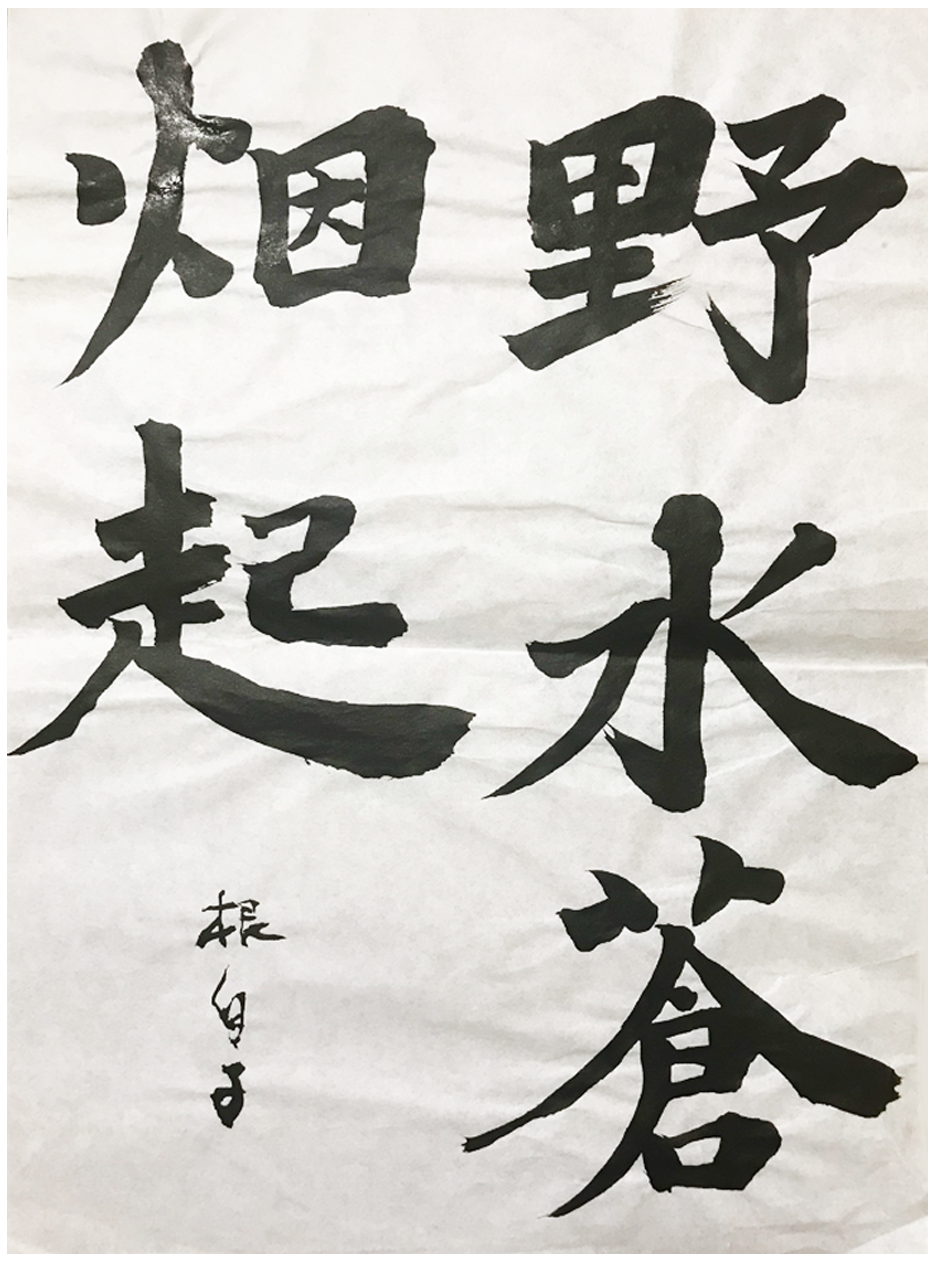 野水蒼
烟起
根白子